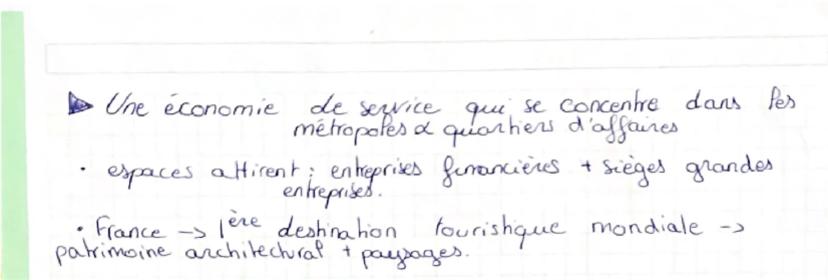 ▶ Une économie de service qui se concentre dans les
métropoles & quartiers d'affaires
• espaces attirent : entreprises financières + sièges grandes
entreprises.
• France -> 1ère destination touristique mondiale ->
patrimoine architectural + paysages.